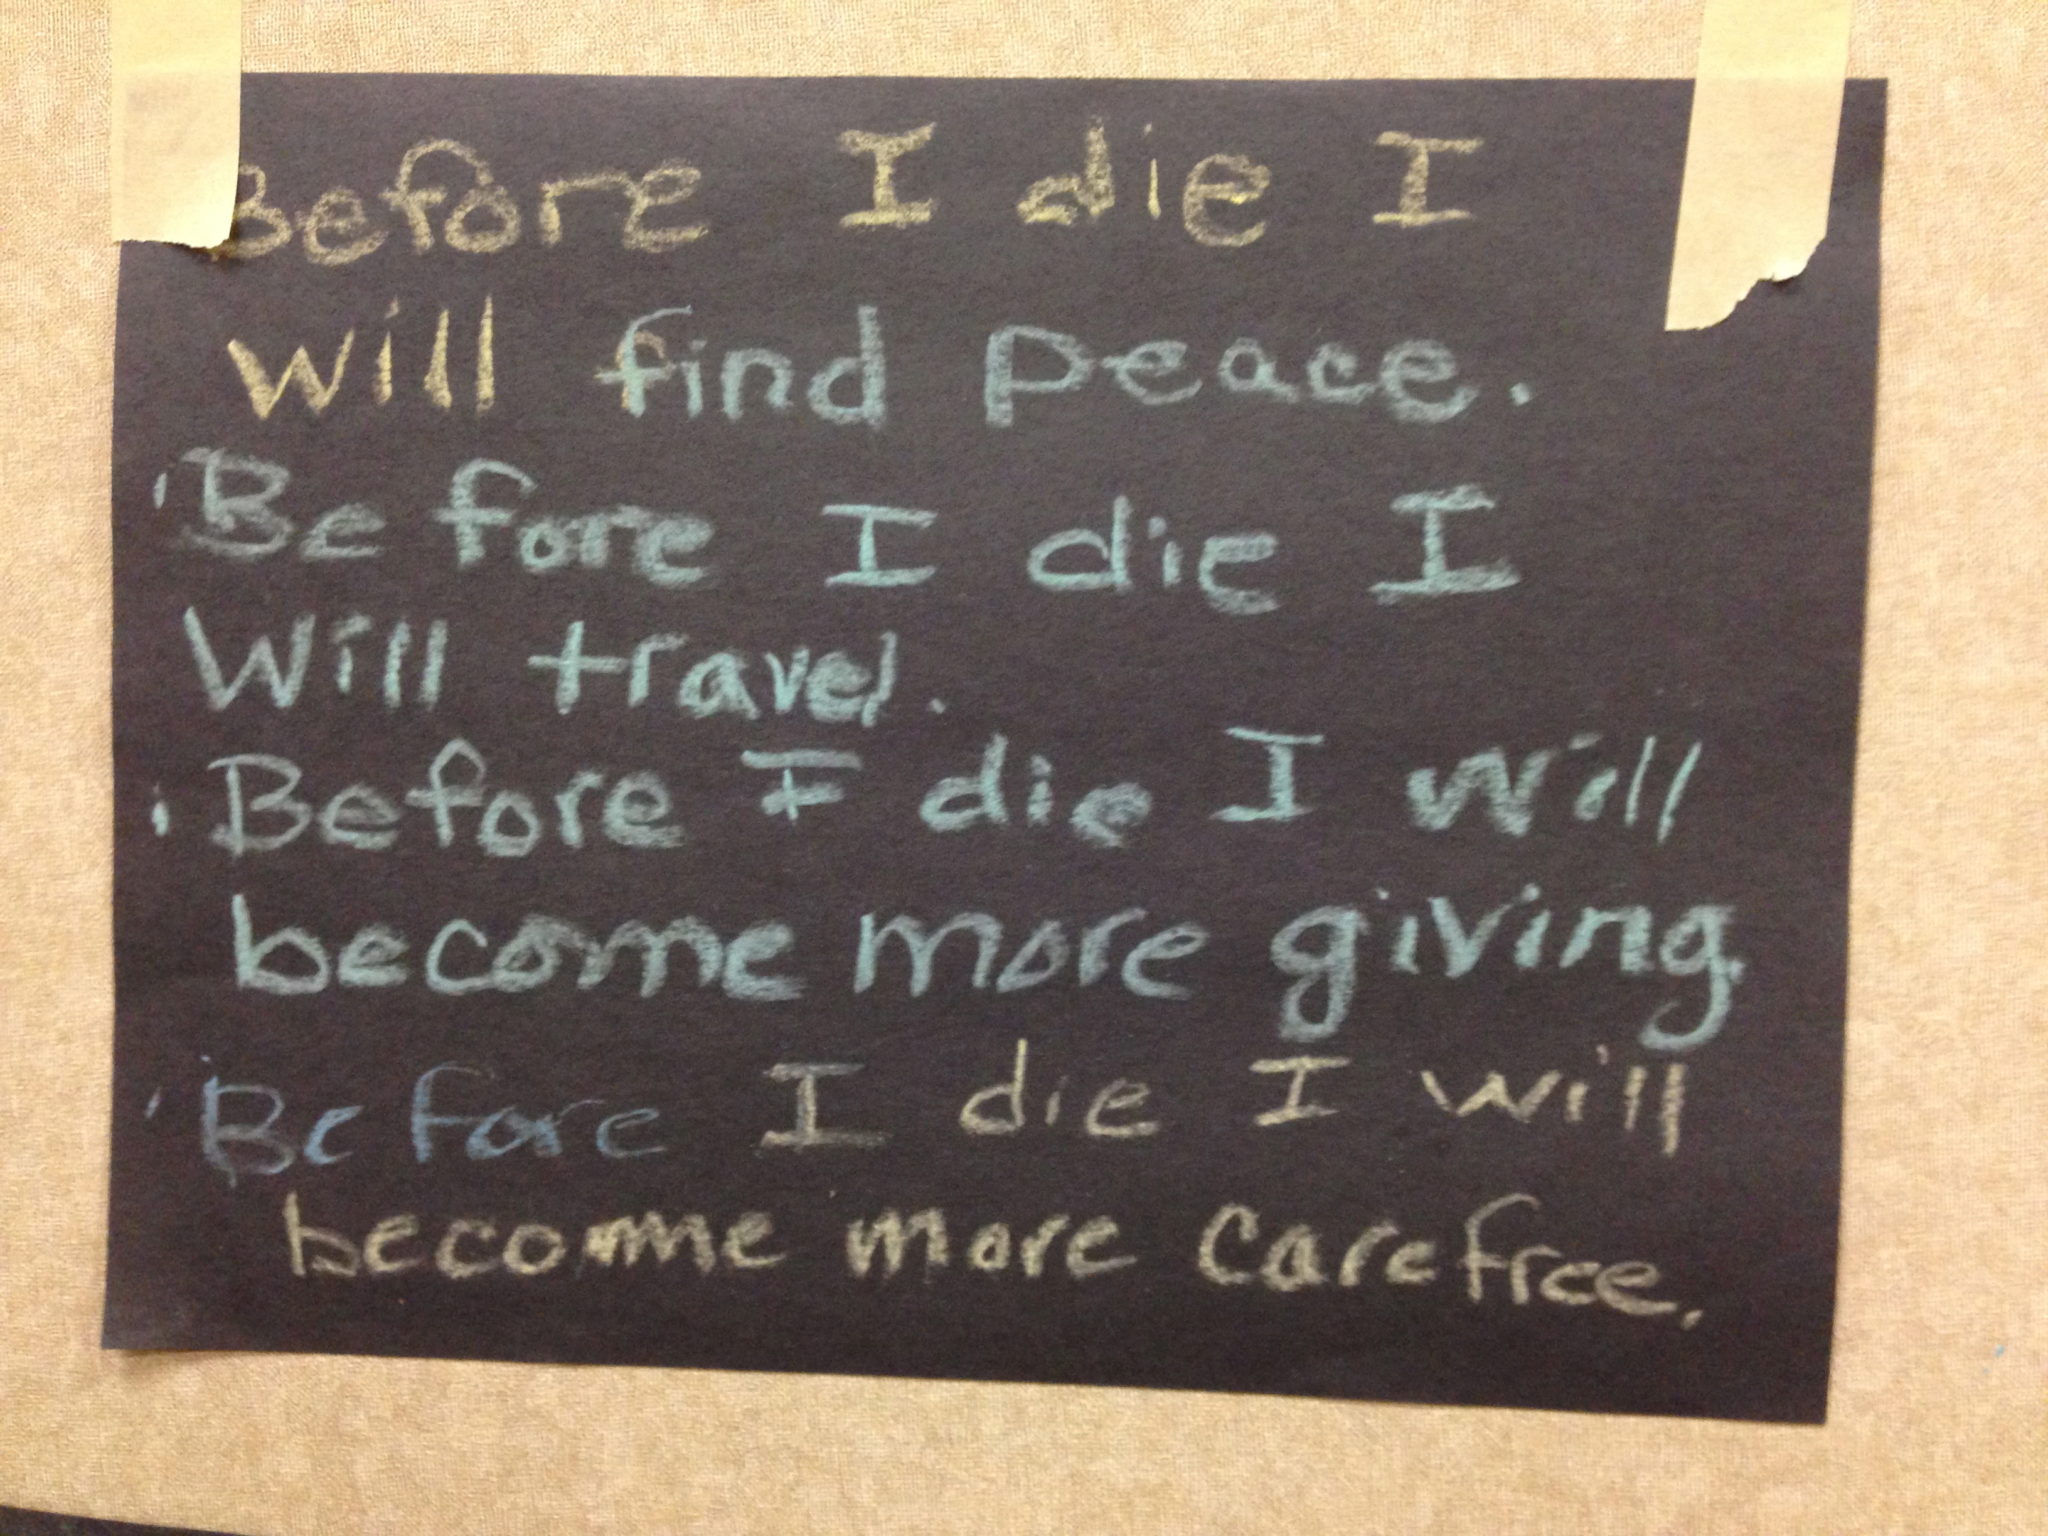 Before I die I
will find peace.
Before I die I
will travel.
Before I die I will
become more giving.
Before I die I will
become more carefree.